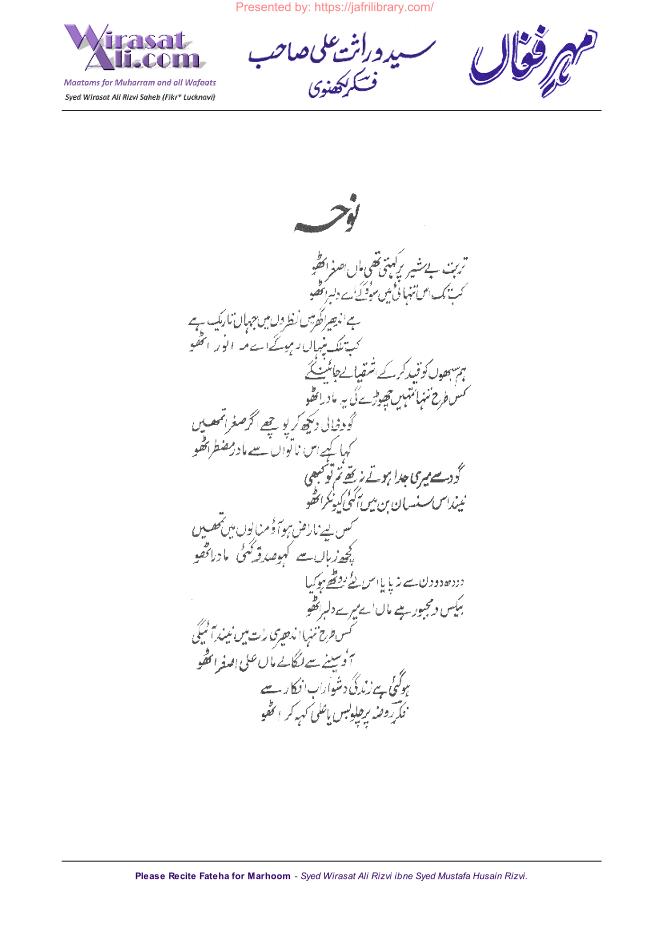 Presented by: https://jafrilibrary.com/
Wirasat Ali.com
Maatams for Muharram and all Wafaats
Syed Wirasat Ali Rizvi Saheb (Fikr* Lucknavi)
سید وراثت علی صاحب
فکر لکھنوی
مہر فغاں
نوحہ
تربتِ بے شیر پر کہتی تھی ماں اصغر اٹھو
کب تک اس تنہائی میں سوؤ گے اے دلبر اٹھو
ہے اندھیرا گھر میں نظروں میں جہاں تاریک ہے
کب تلک پنہاں رہو گے اے مہ انور اٹھو
ہم سبھوں کو قید کر کے اشقیا لے جائینگے
کس طرح تنہا تمہیں چھوڑے گی یہ مادر اٹھو
گود خالی دیکھ کر پوچھے گر صغرا تمھیں
کیا کہے اس ناتواں سے مادر مضطر اٹھو
گود سے میری جدا ہوتے نہ تھے تم تو کبھی
نیند اس سنسان بن میں آ گئی کیونکر اٹھو
کس لیے ناراض ہو آؤ منا لوں میں تمھیں
کچھ زباں سے کہو صدقے گئی مادر اٹھو
دودھ دو دن سے نہ پایا اس لئے روٹھے ہو کیا
بیکس و مجبور ہے ماں اے میرے دلبر اٹھو
کس طرح تنہا اندھیری رات میں نیند آئیگی
آؤ سینے سے لگا لے ماں علی اصغر اٹھو
ہو گئی ہے زندگی دشوار اب افکار سے
فکر روضہ پر چلو بس یا علی کہہ کر اٹھو
Please Recite Fateha for Marhoom - Syed Wirasat Ali Rizvi ibne Syed Mustafa Husain Rizvi.